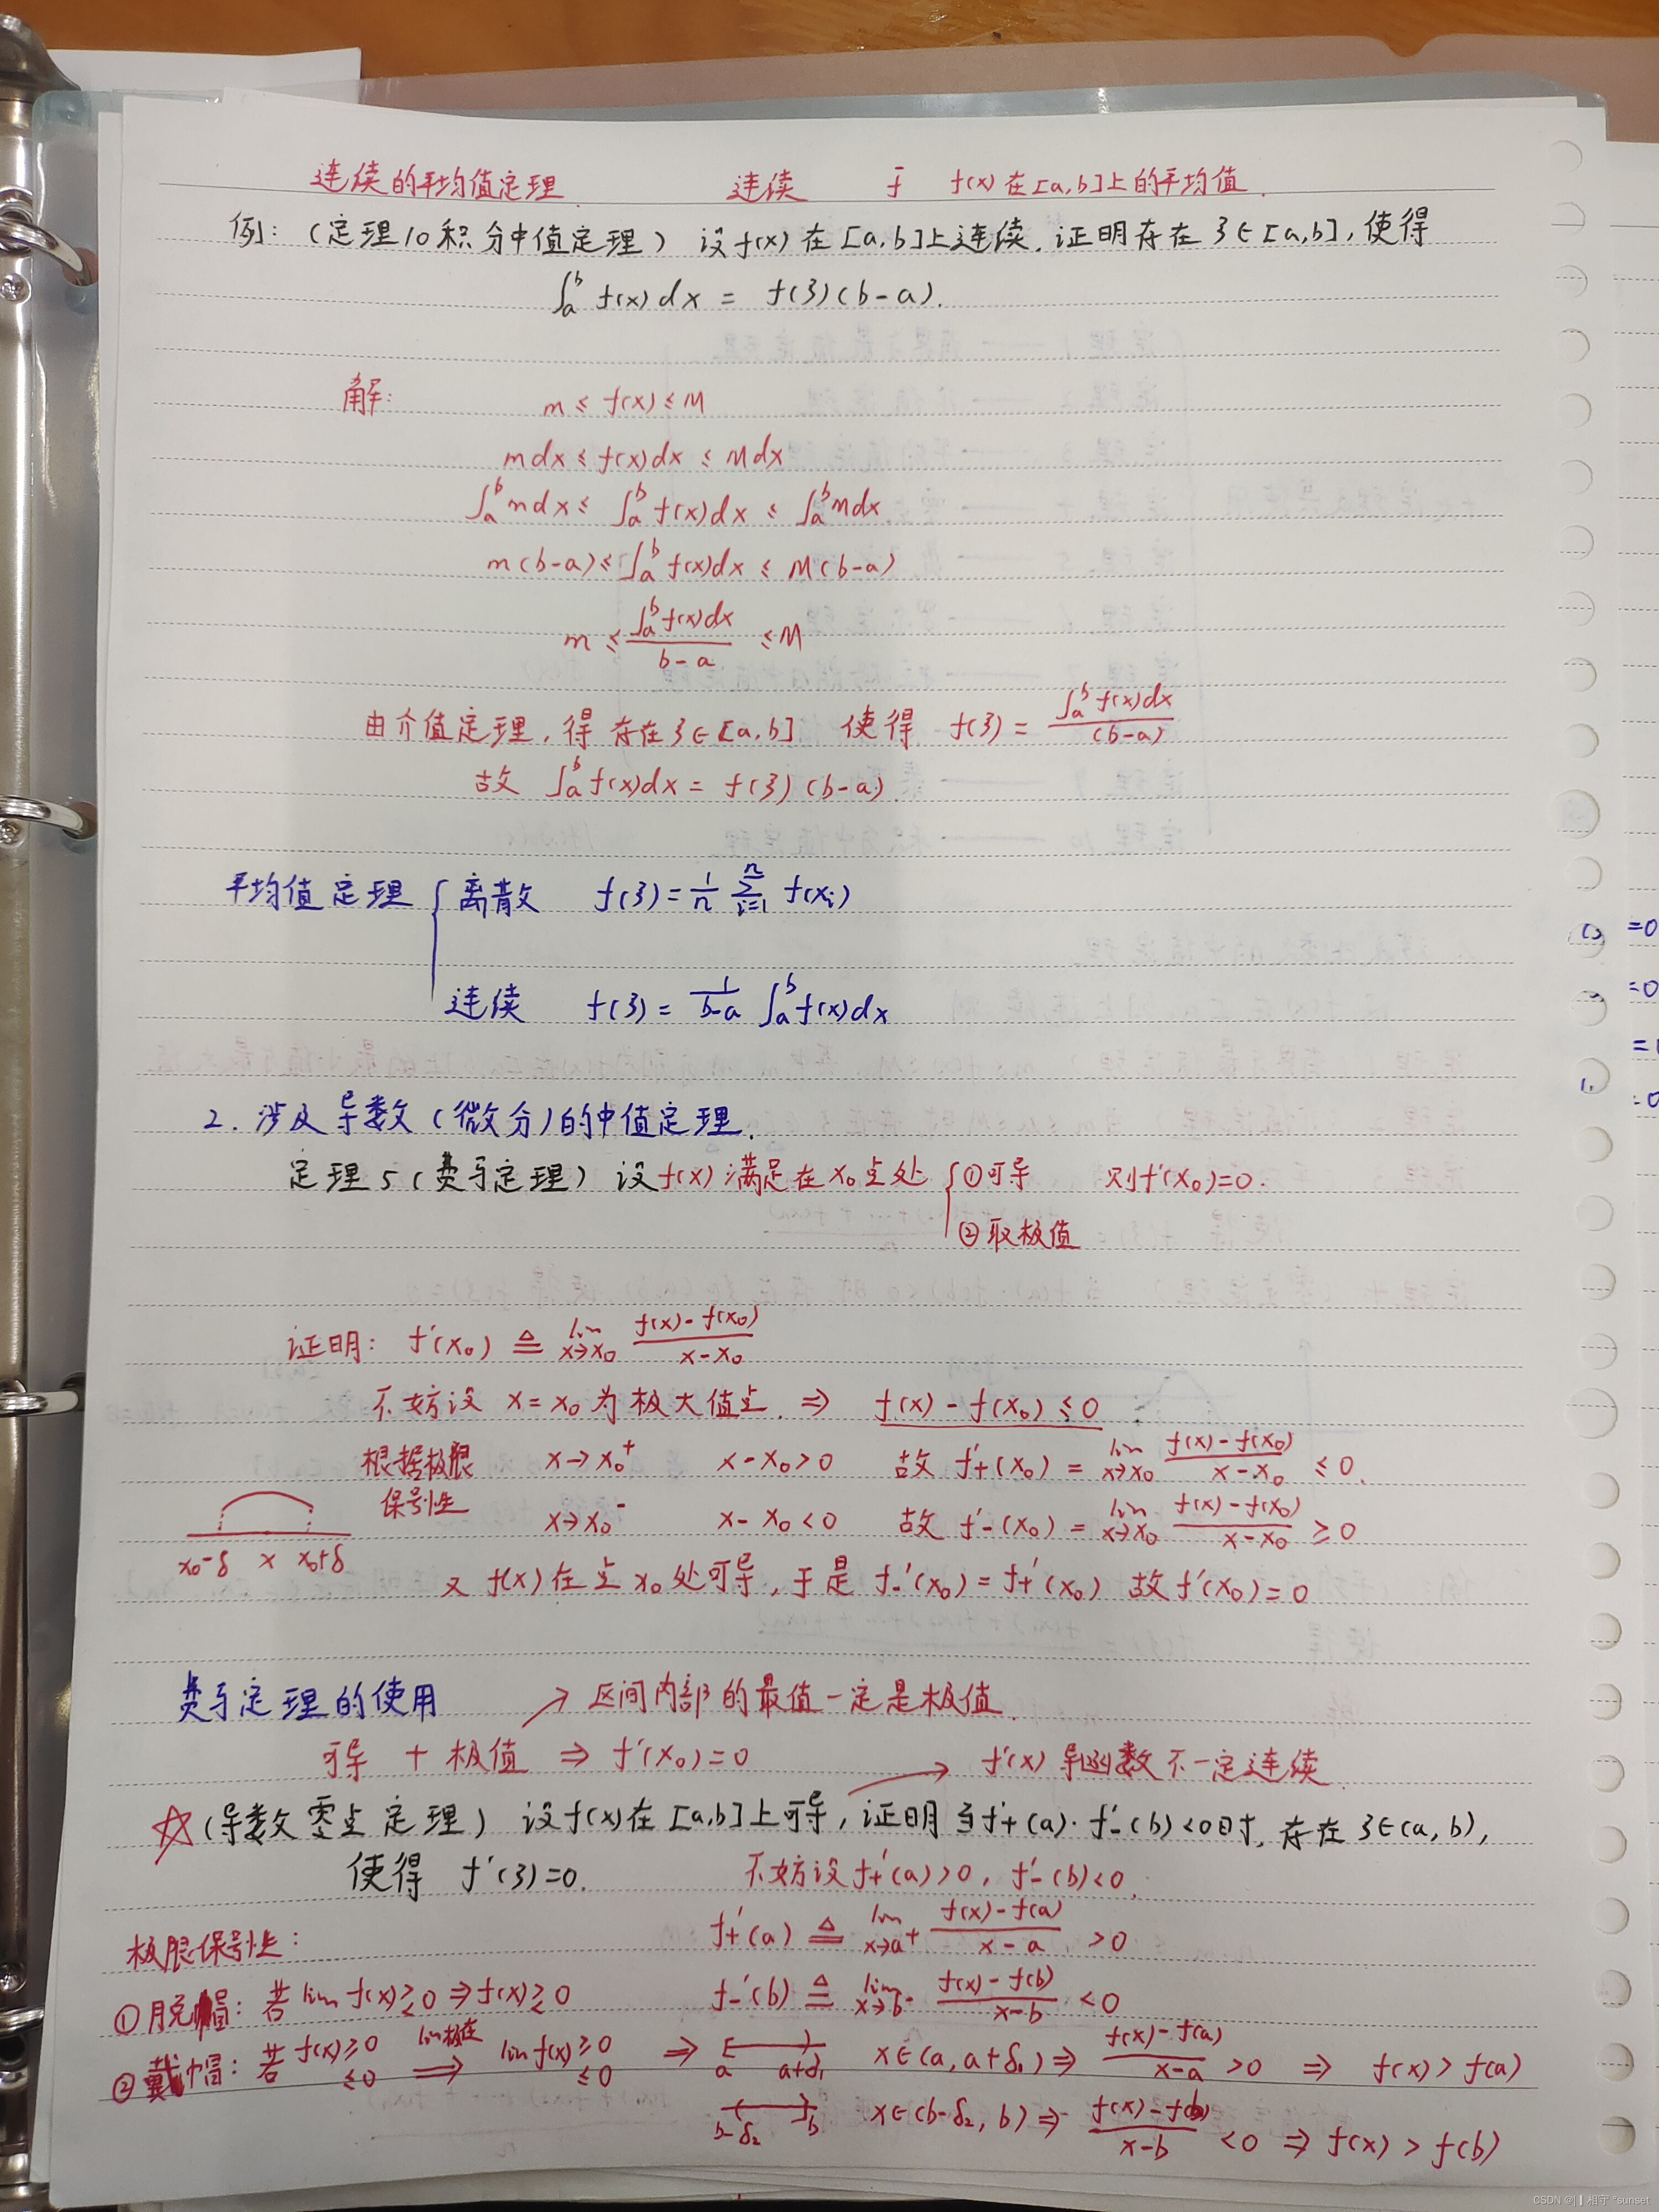 连续的平均值定理 连续 f̄ f(x)在[a,b]上的平均值.
例:(定理10积分中值定理) 设f(x)在[a,b]上连续.证明存在ξ∈[a,b],使得
∫ₐᵇ f(x)dx = f(ξ)(b-a).
解: m ≤ f(x) ≤ M
mdx ≤ f(x)dx ≤ Mdx
∫ₐᵇ mdx ≤ ∫ₐᵇ f(x)dx ≤ ∫ₐᵇ Mdx
m(b-a) ≤ ∫ₐᵇ f(x)dx ≤ M(b-a)
m ≤ ∫ₐᵇ f(x)dx / (b-a) ≤ M
由介值定理,得存在ξ∈[a,b] 使得 f(ξ) = ∫ₐᵇ f(x)dx / (b-a)
故 ∫ₐᵇ f(x)dx = f(ξ)(b-a).
平均值定理 { 离散 f(ξ) = 1/n Σᵢ₌₁ⁿ f(xᵢ)
连续 f(ξ) = 1/(b-a) ∫ₐᵇ f(x)dx
2. 涉及导数(微分)的中值定理.
定理5(费马定理) 设f(x)满足在x₀点处 { ①可导 则f'(x₀)=0.
②取极值
证明: f'(x₀) ≜ lim x→x₀ (f(x)-f(x₀))/(x-x₀)
不妨设 x=x₀为极大值点. ⇒ f(x)-f(x₀) ≤ 0
根据极限 x→x₀⁺ x-x₀>0 故 f'₊(x₀) = lim x→x₀ (f(x)-f(x₀))/(x-x₀) ≤ 0.
保号性 x→x₀⁻ x-x₀<0 故 f'₋(x₀) = lim x→x₀ (f(x)-f(x₀))/(x-x₀) ≥ 0
x₀-δ x x₀+δ
又 f(x)在点x₀处可导,于是 f₋'(x₀)=f₊'(x₀) 故f'(x₀)=0
费马定理的使用 → 区间内部的最值一定是极值.
可导 + 极值 ⇒ f'(x₀)=0 → f'(x)导函数不一定连续.
☆(导数零点定理) 设f(x)在[a,b]上可导,证明当f'₊(a)·f'₋(b)<0时,存在ξ∈(a,b),
使得 f'(ξ)=0. 不妨设f₊'(a)>0, f'₋(b)<0.
f₊'(a) ≜ lim x→a⁺ (f(x)-f(a))/(x-a) >0
极限保号性:
f₋'(b) ≜ lim x→b⁻ (f(x)-f(b))/(x-b) <0
①脱帽: 若 lim f(x) ≷ 0 ⇒ f(x) ≷ 0
②戴帽: 若 f(x) ≥0 ≤0 ⟹ lim f(x) ≥0 ≤0
⇒ a a+δ₁ x∈(a,a+δ₁) ⇒ (f(x)-f(a))/(x-a) >0 ⇒ f(x)>f(a)
b-δ₂ b x∈(b-δ₂,b) ⇒ (f(x)-f(b))/(x-b) <0 ⇒ f(x)>f(b)
=0
=0
CSDN @